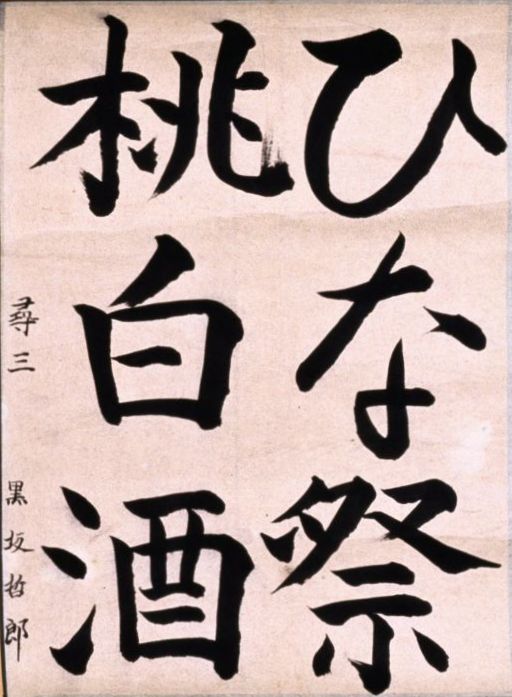 ひな祭
桃白酒
尋三 黒坂哲郎